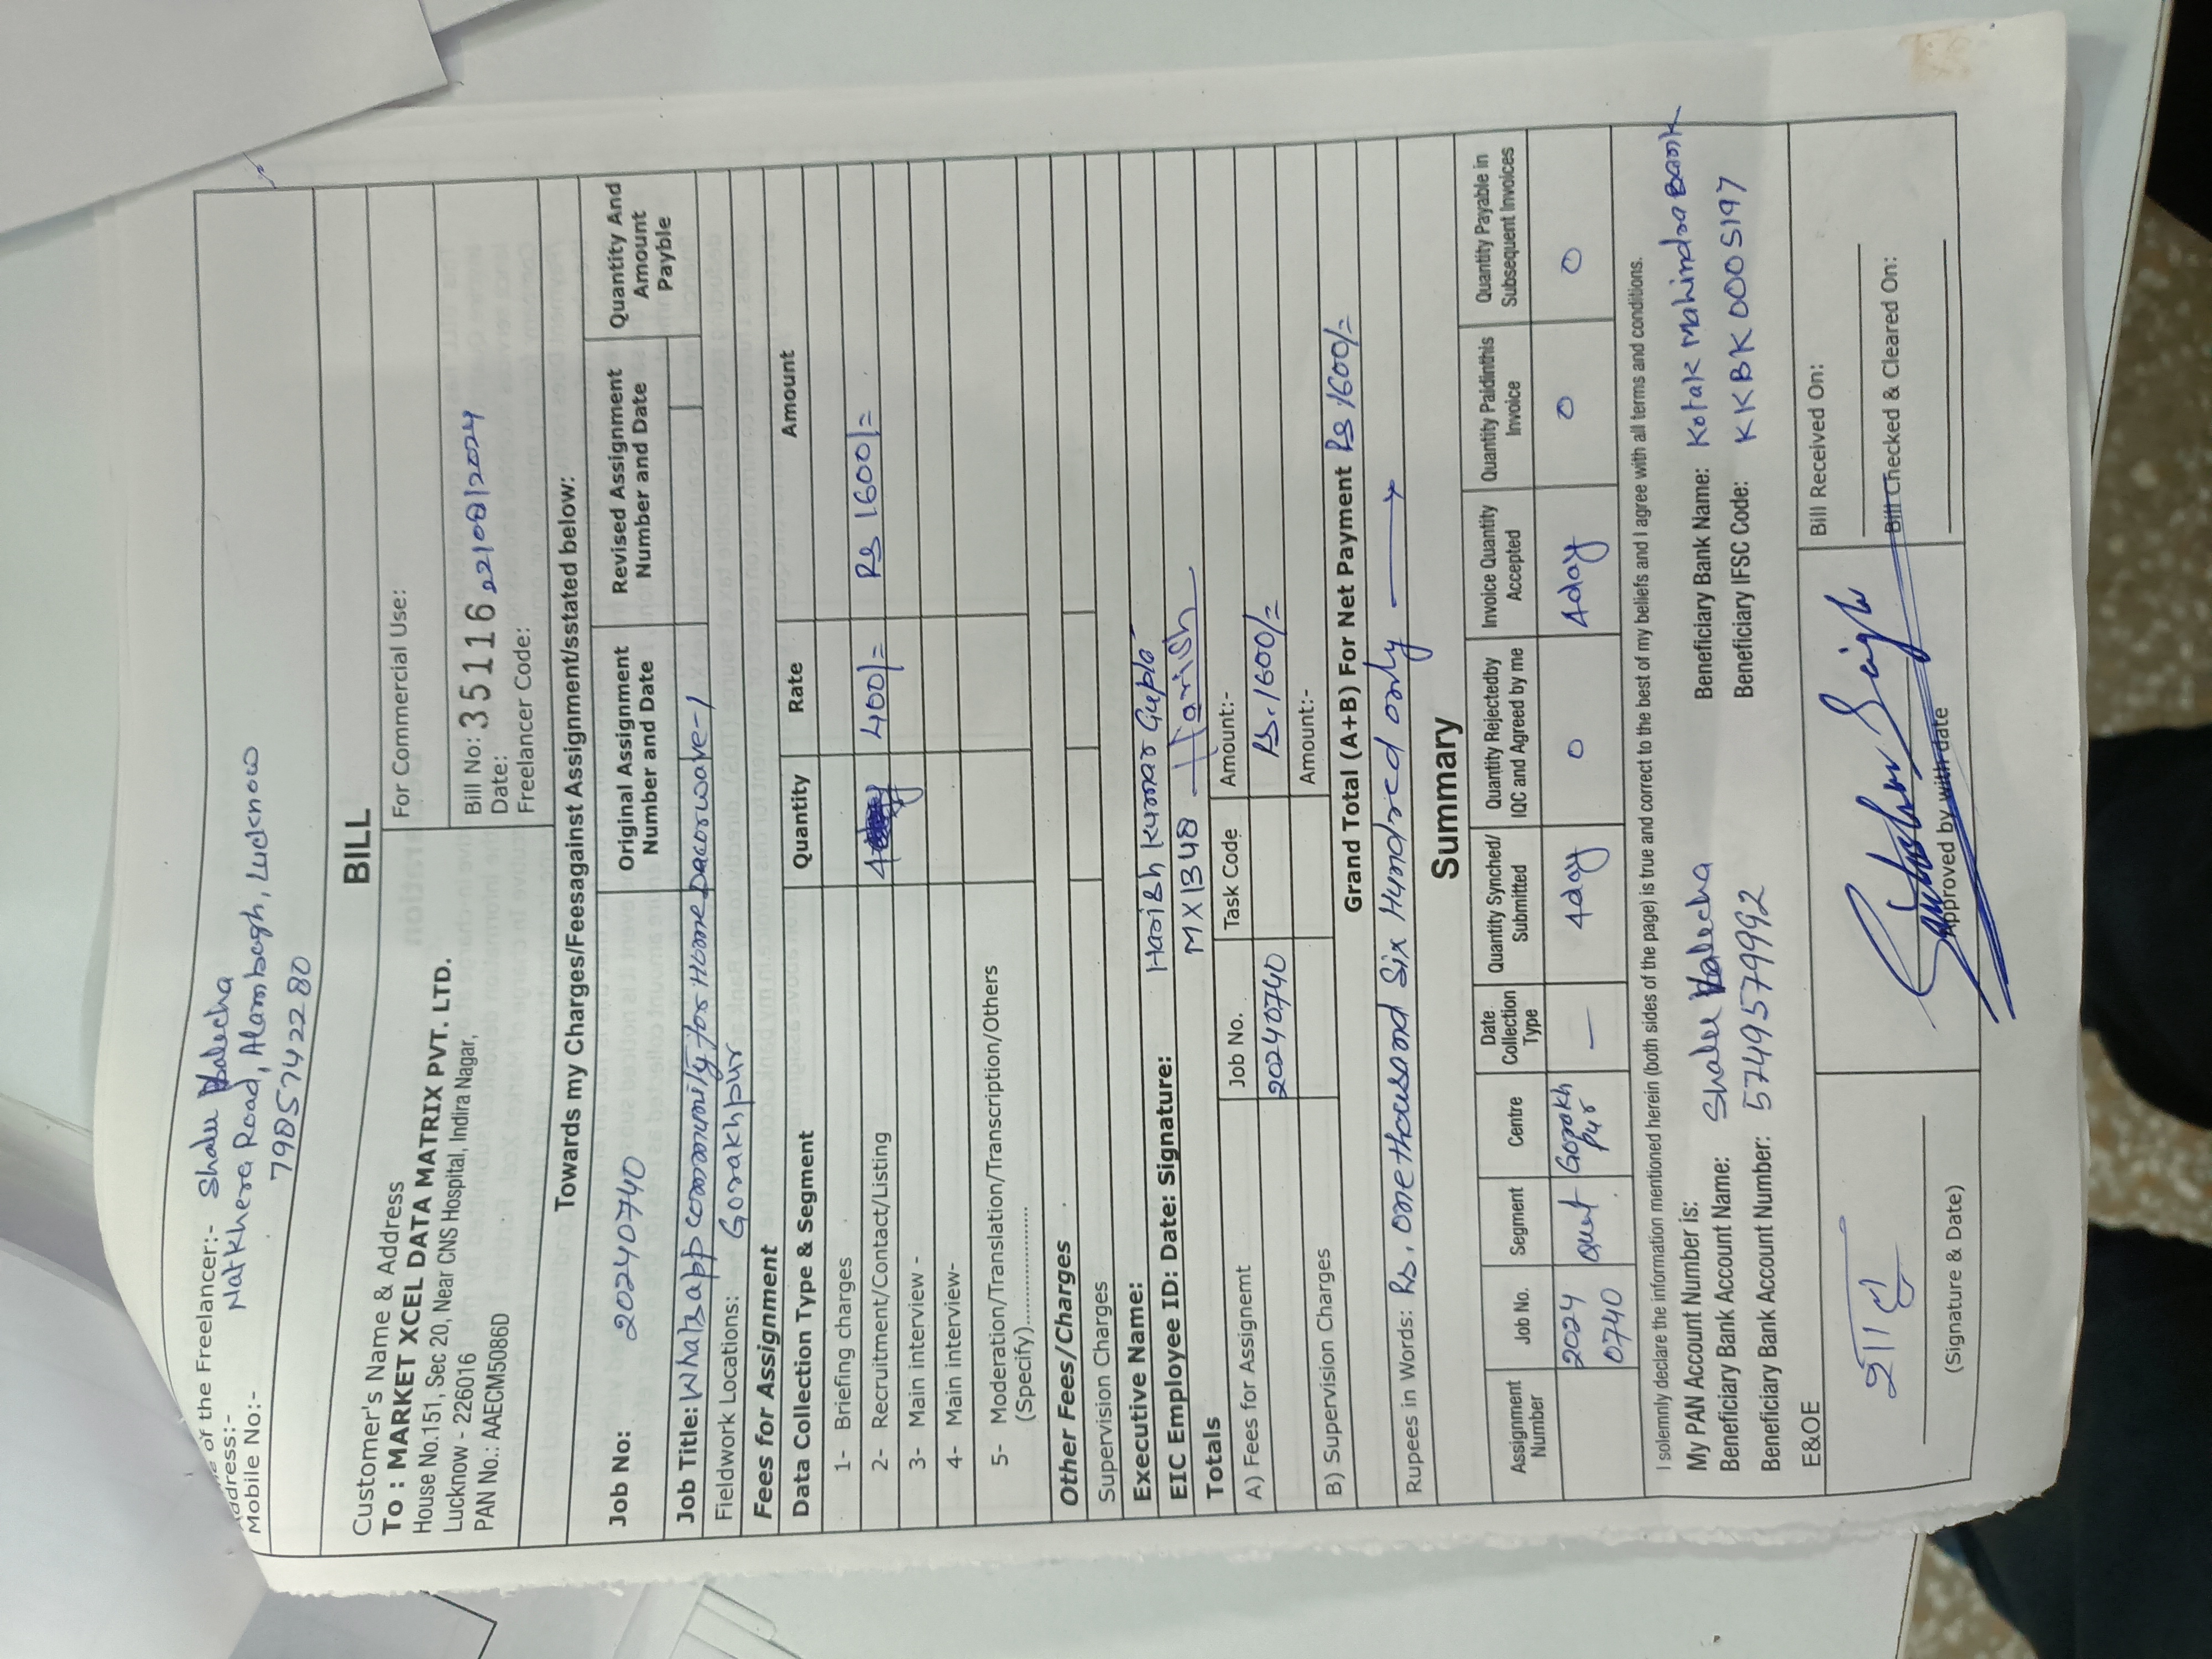 of the Freelancer:- Shalu Valecha
dress:- Natkhera Road, Alambagh, Lucknow
Mobile No:- 7905742280
BILL
Customer's Name & Address
To : MARKET XCEL DATA MATRIX PVT. LTD.
House No.151, Sec 20, Near CNS Hospital, Indira Nagar,
Lucknow - 226016
PAN No.: AAECM5086D
For Commercial Use:
Bill No: 35116
Date: 22/08/2024
Freelancer Code:
Towards my Charges/Feesagainst Assignment/sstated below:
Job No: 20240740
Original Assignment Number and Date
Revised Assignment Number and Date
Quantity And Amount Payble
Job Title: Whatsapp community for Home Dacorwave-1
Fieldwork Locations: Gorakhpur
Fees for Assignment
Data Collection Type & Segment Quantity Rate Amount
1- Briefing charges
2- Recruitment/Contact/Listing 400/= Rs 1600/=
3- Main interview -
4- Main interview-
5- Moderation/Translation/Transcription/Others
(Specify)..................
Other Fees/Charges
Supervision Charges
Executive Name: Harish Kumar Gupta
EIC Employee ID: Date: Signature: MX1348 Harish
Totals Job No. Task Code Amount:-
A) Fees for Assignemt 20240740 Rs.1600/=
B) Supervision Charges Amount:-
Grand Total (A+B) For Net Payment Rs 1600/=
Rupees in Words: Rs. one thousand Six Hundred only
Summary
Assignment Number
Job No.
Segment
Centre
Date Collection Type
Quantity Synched/ Submitted
Quantity Rejectedby IQC and Agreed by me
Invoice Quantity Accepted
Quantity Paidinthis Invoice
Quantity Payable in Subsequent Invoices
2024 0740 Gorakh pur — 4day 0 4day 0 0
I solemnly declare the information mentioned herein (both sides of the page) is true and correct to the best of my beliefs and I agree with all terms and conditions.
My PAN Account Number is:
Beneficiary Bank Account Name: Shalu Valecha
Beneficiary Bank Account Number: 5749579992
Beneficiary Bank Name: Kotak Mahindra Bank
Beneficiary IFSC Code: KKBK0005197
E&OE
(Signature & Date)
Approved by with date
Bill Received On:
Bill Checked & Cleared On: